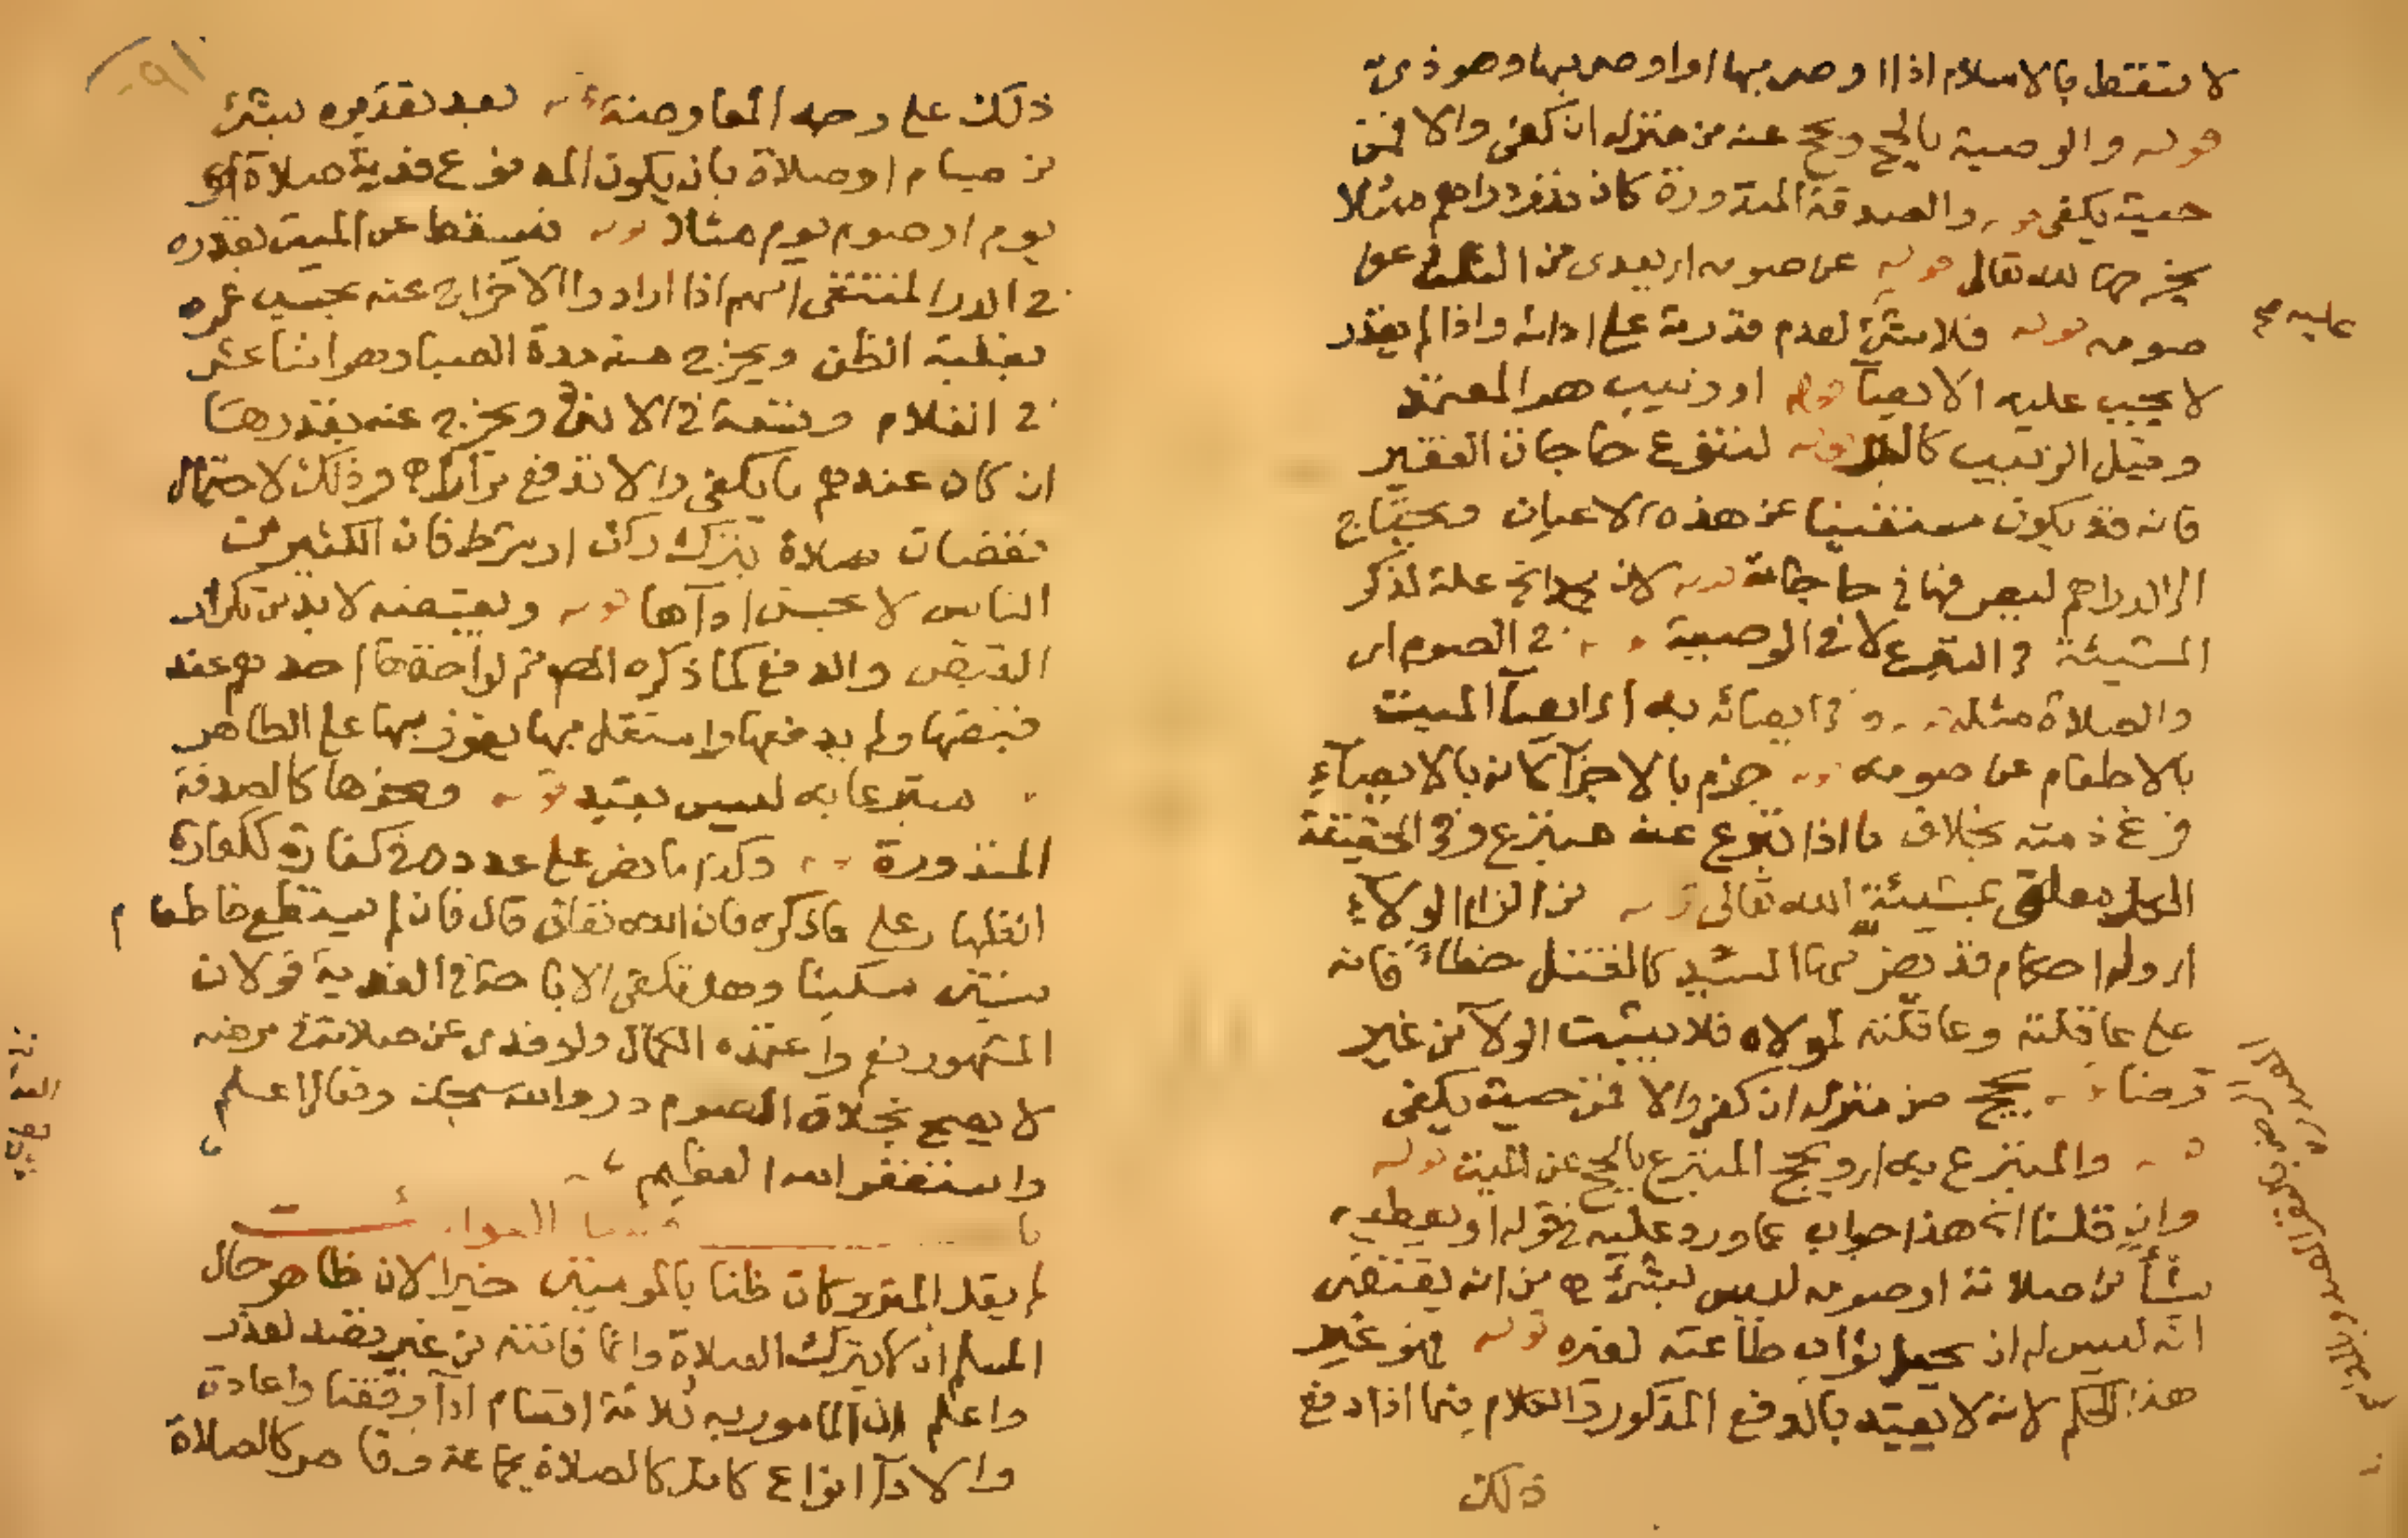 لا تسقط بالاسلام اذا اوصى بها او اوصى بها وهو ذمي
قوله والوصية بالحج ويحج عنه من منزله ان كفى والا فمن
حيث يكفى قوله والصدقة المنذورة كان نذر دراهم مثلا
يخرجها لله تعالى قوله عن صومه اي يفدى من الثلث عن
صومه قوله فلا شئ لعدم قدرته على ادائه واذا لم يقدر
عليه صح
لا يجب عليه الايصآ قوله او زبيب هو المعتمد
وقيل الزبيب كالبر قوله لتنوع حاجات الفقير
فانه قد يكون مستغنيا عن هذه الاعيان ويحتاج
الى الدراهم ليصرفها في حاجاته قوله لان محمدا الخ علة لذكر
المشيئة في التبرع لا في الوصية قوله في الصوم اى
والصلاة مثله قوله وفي ايصائه به اى ايصآ الميت
بالاطعام عن صومه قوله جزم بالاجزآ كانه بالايصآء
فرغ ذمته بخلاف ما اذا تبرع عنه متبرع وفي الحقيقة
الكل معلق بمشيئة الله تعالى قوله من الزام الولآء
اى وله احكام قد يضر بها السيد كالقتل خطاء فانه
على عاقلته وعاقلته لمولاه فلا يثبت الولآ من غير
رضاه قوله يحج من منزله ان كفى والا فمن حيث يكفى
قوله والمتبرع به اى ويحج المتبرع بالحج عن الميت قوله
وان قلنا الخ هذا جواب عما ورد عليه في قوله او يعطيه
شيأ من صلاته او صومه ليس بشئ من انه يقتضى
انه ليس له ان يجعل ثواب طاعته لغيره قوله فهو غير
هذا الحكم لانه لا يعتد بالدفع المذكور والكلام فيما اذا دفع
ذلك
ذلك على وجه المعاوضة قوله بعد تقديره بشئ
من صيام او صلاة بان يكون المدفوع فدية صلاة او
يوم او صوم يوم مثلا قوله فيسقط عن الميت بقدره
في الدر المنتقى انهم اذا ارادوا الاخراج عنه يحسب عمره
بغلبة الظن ويخرج منه مدة الصبا وهو اثنا عشر
في الغلام وتسعة في الانثى ويخرج عنه بقدرها
ان كان عندهم ما يكفى والا تدفع مرارا وذلك لاحتمال
نقصان صلاة بترك ركن او شرط فان الكثير من
الناس لا يحسن ادآها قوله ويقبضه لا بد من تكرار
القبض والدفع كما ذكره المص ثم لو اخذها احدهم عند
قبضها ولم يدفعها واستقل بها يفوز بها على الظاهر
متبرعا به ليس بقيد قوله ونحوها كالصدقة
المنذورة قوله وكذا ما نص على عدده في كفارة ككفارة
القتل على ما ذكره فان الله تعالى قال فان لم يستطع فاطعام
ستين مسكينا وهل تكفى الاباحة في الفدية قولان
المشهور نعم واعتمده الكمال ولو فدى عن صلاته في مرضه
لا يصح بخلاف الصوم در والله سبحانه وتعالى اعلم
واستغفر الله العظيم
باب قضآ الفوائت
لم يقل المتروكات ظنا بالمومنين خيرا لان ظاهر حال
المسلم ان لا يترك الصلاة وانما فاتته من غير قصد لعذر
واعلم ان المامور به ثلاثة اقسام ادآ وقضا واعادة
والادآ انواع كامل كالصلاة بجماعة وقاصر كالصلاة